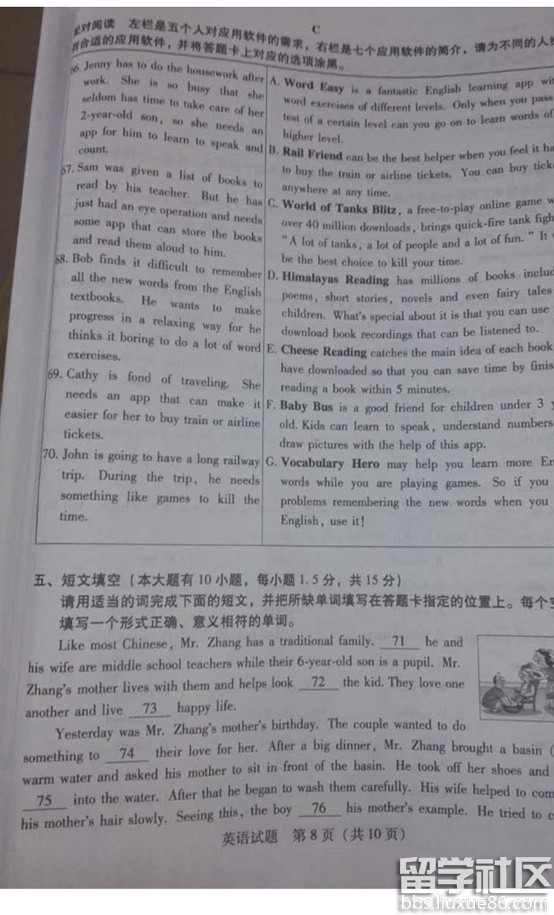 C
配对阅读 左栏是五个人对应用软件的需求，右栏是七个应用软件的简介，请为不同的人
合适的应用软件，并将答题卡上对应的选项涂黑。
66. Jenny has to do the housework after
work. She is so busy that she
seldom has time to take care of her
2-year-old son, so she needs an
app for him to learn to speak and
count.
67. Sam was given a list of books to
read by his teacher. But he has
just had an eye operation and needs
some app that can store the books
and read them aloud to him.
68. Bob finds it difficult to remember
all the new words from the English
textbooks. He wants to make
progress in a relaxing way for he
thinks it boring to do a lot of word
exercises.
69. Cathy is fond of traveling. She
needs an app that can make it
easier for her to buy train or airline
tickets.
70. John is going to have a long railway
trip. During the trip, he needs
something like games to kill the
time.
A. Word Easy is a fantastic English learning app
word exercises of different levels. Only when you pass
test of a certain level can you go on to learn words of
higher level.
B. Rail Friend can be the best helper when you feel it
to buy the train or airline tickets. You can buy
anywhere at any time.
C. World of Tanks Blitz, a free-to-play online game
over 40 million downloads, brings quick-fire tank
"A lot of tanks, a lot of people and a lot of fun." It
be the best choice to kill your time.
D. Himalayas Reading has millions of books
poems, short stories, novels and even fairy tales
children. What's special about it is that you can use
download book recordings that can be listened to.
E. Cheese Reading catches the main idea of each book
have downloaded so that you can save time by
reading a book within 5 minutes.
F. Baby Bus is a good friend for children under 3
old. Kids can learn to speak, understand numbers
draw pictures with the help of this app.
G. Vocabulary Hero may help you learn more
words while you are playing games. So if you
problems remembering the new words when you
English, use it!
五、短文填空（本大题有 10 小题，每小题 1.5 分，共 15 分）
请用适当的词完成下面的短文，并把所缺单词填写在答题卡指定的位置上。每个
填写一个形式正确、意义相符的单词。
Like most Chinese, Mr. Zhang has a traditional family. 71 he and
his wife are middle school teachers while their 6-year-old son is a pupil. Mr.
Zhang's mother lives with them and helps look 72 the kid. They love one
another and live 73 happy life.
Yesterday was Mr. Zhang's mother's birthday. The couple wanted to do
something to 74 their love for her. After a big dinner, Mr. Zhang brought a basin (
warm water and asked his mother to sit in front of the basin. He took off her shoes and
75 into the water. After that he began to wash them carefully. His wife helped to
his mother's hair slowly. Seeing this, the boy 76 his mother's example. He tried to
英语试题 第 8 页（共 10 页）
留学社区
bbs.liuxue86.com